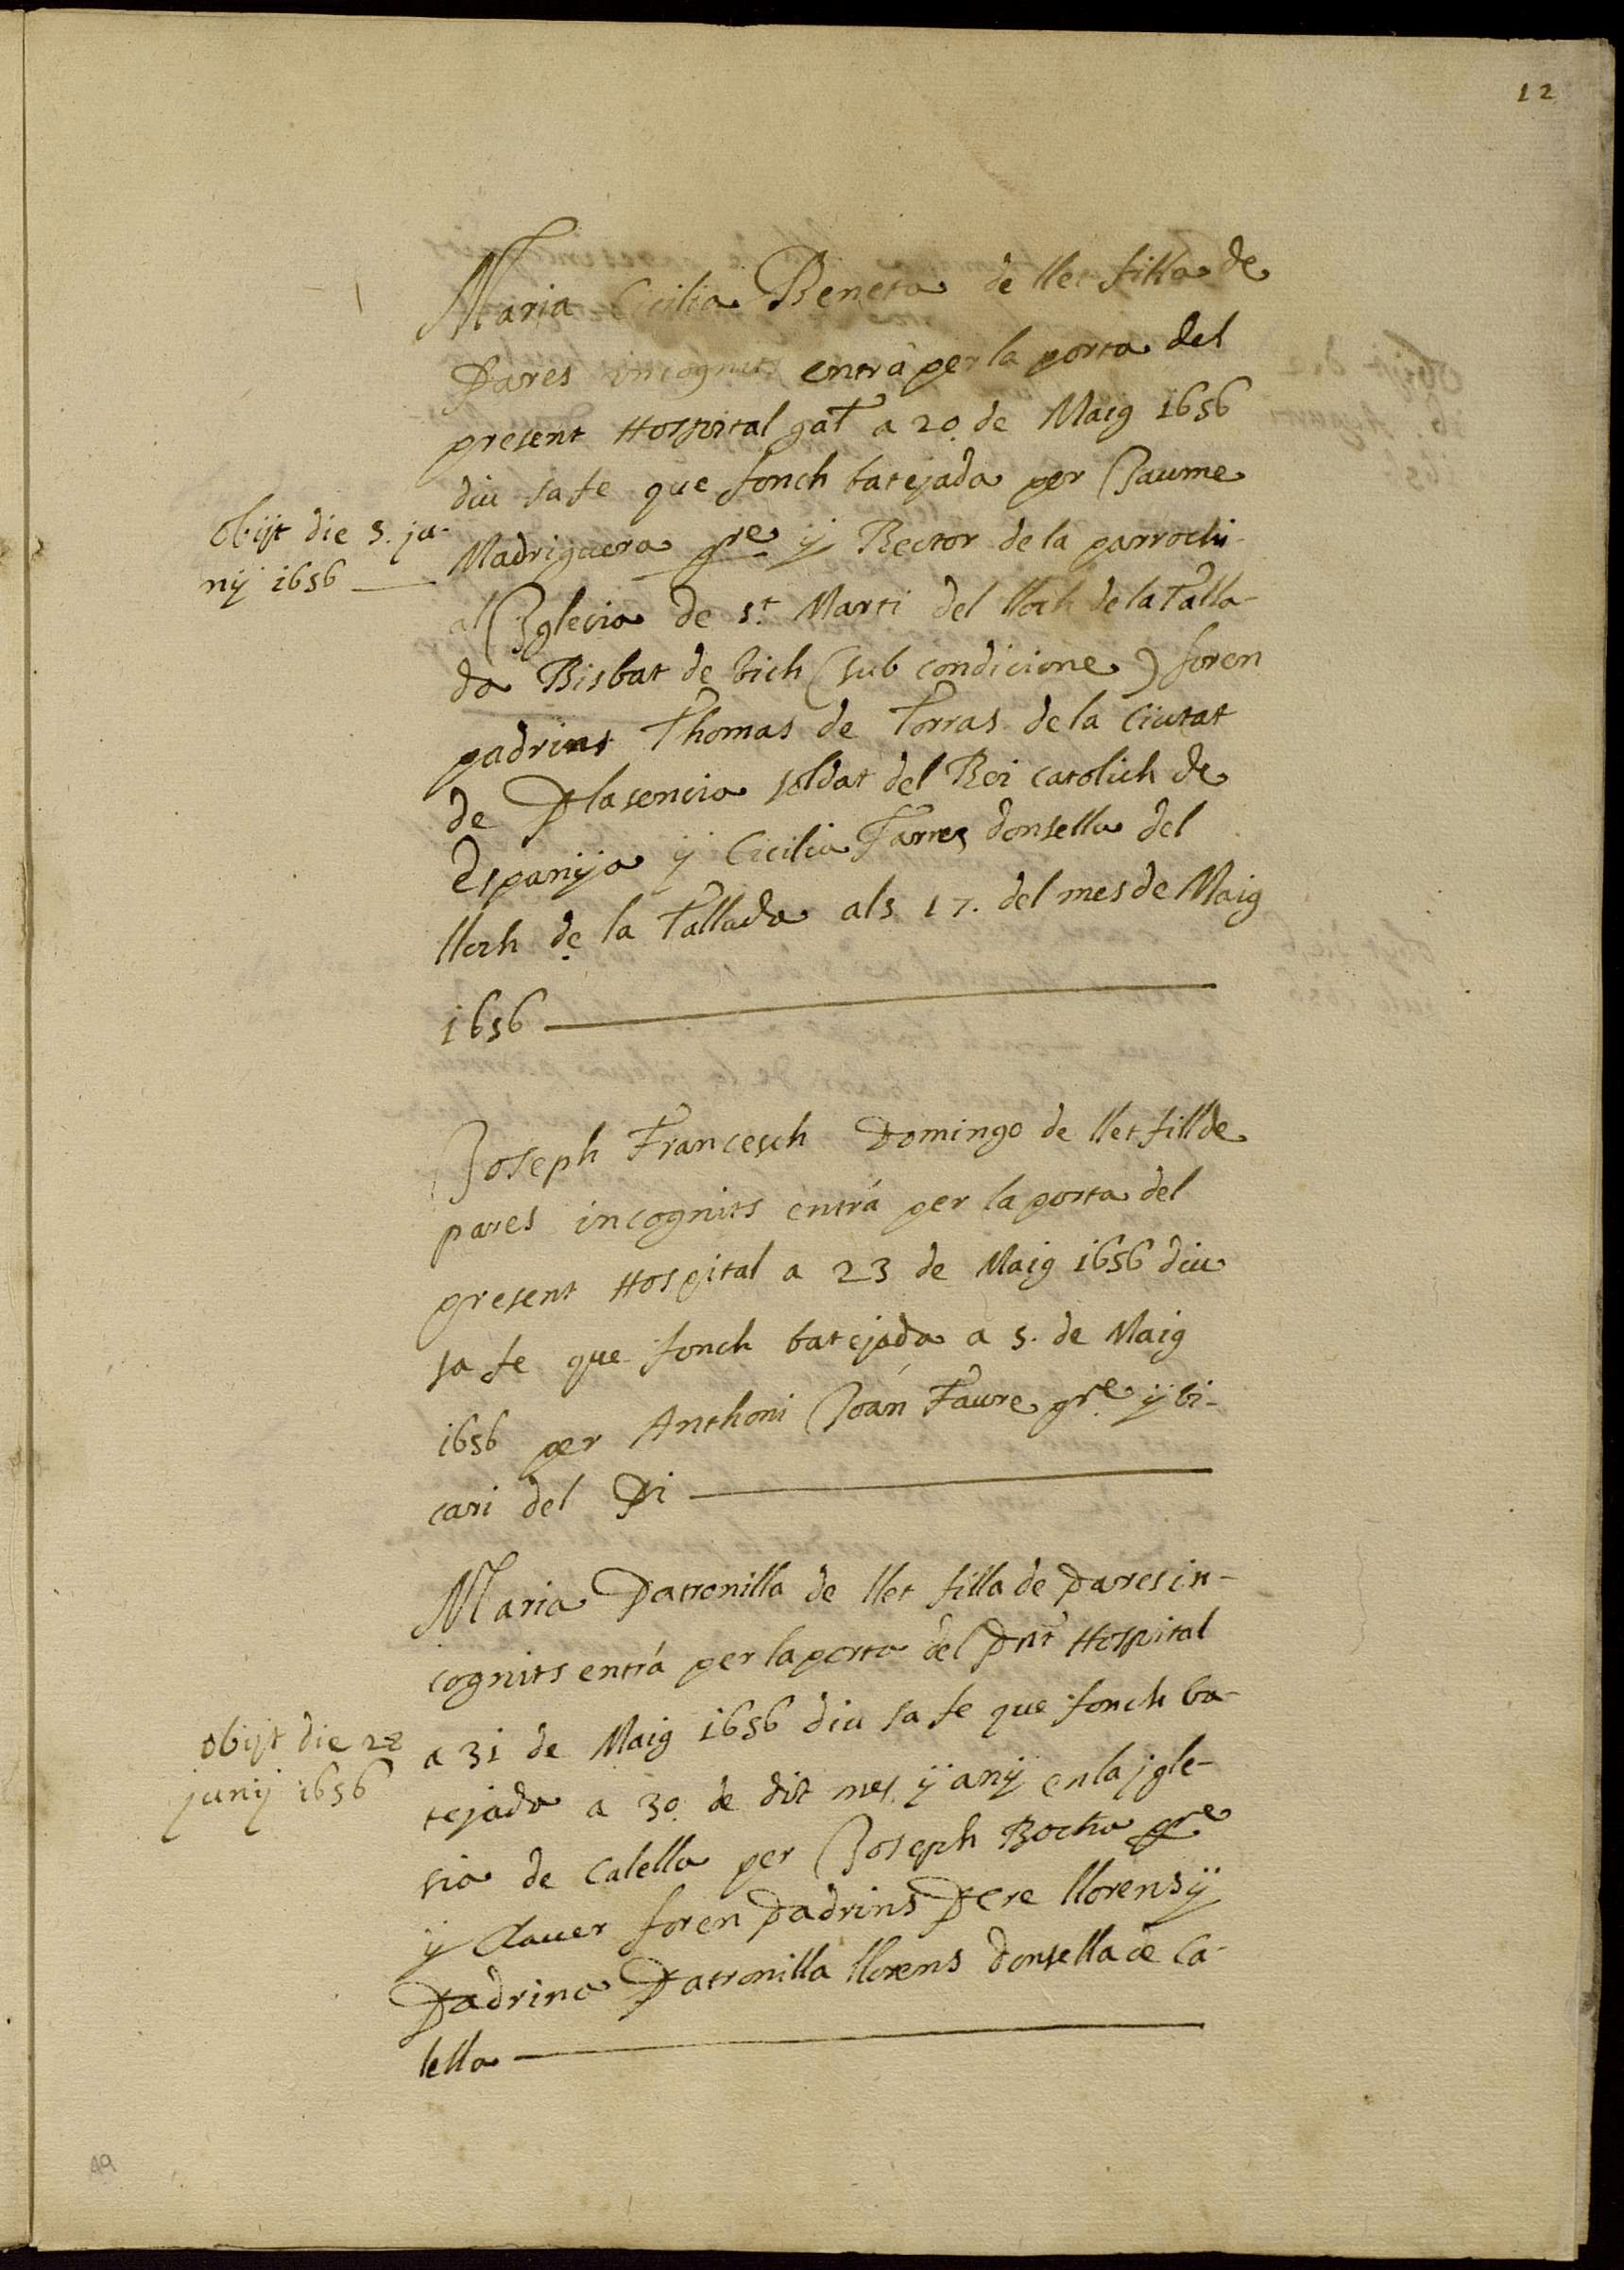 12
Maria Cicilia Beneta de llet filla de
Pares incognits entrà per la porta del
present Hospital gat a 20. de Maig 1656
diu sa fe que fonch batejada per Jaume
Obijt die 5. ju-
nÿ 1656
Madriguera pre ÿ Rector de la parrochi-
al Iglecia de St. Marti del lloch de la Talla-
da Bisbat de bich (sub condicione) foren
padrins Thomas de Torras de la Ciutat
de Plasencia soldat del Rei catolich de
Espanÿa ÿ Cicilia Farres donsella del
lloch de la Tallada als 17. del mes de Maig
1656
Joseph Francesch Domingo de llet fill de
pares incognits entrá per la porta del
present Hospital a 23 de Maig 1656 diu
sa fe que fonch batejada a 5. de Maig
1656 per Anthoni Joán Faure pre. ÿ bi-
cari del Pi
Maria Patronilla de llet filla de Pares in-
cognits entrá per la porta del Pnt Hospital
a 31 de Maig 1656 diu sa fe que fonch ba-
Obijt die 28
junÿ 1656
tejada a 30. de dit mes ÿ anÿ en la jgle-
sia de Calella per Joseph Rocha pre
ÿ Claver foren Padrins Pere llorens ÿ
Padrina Patronilla llorens donsella de Ca-
lella
49